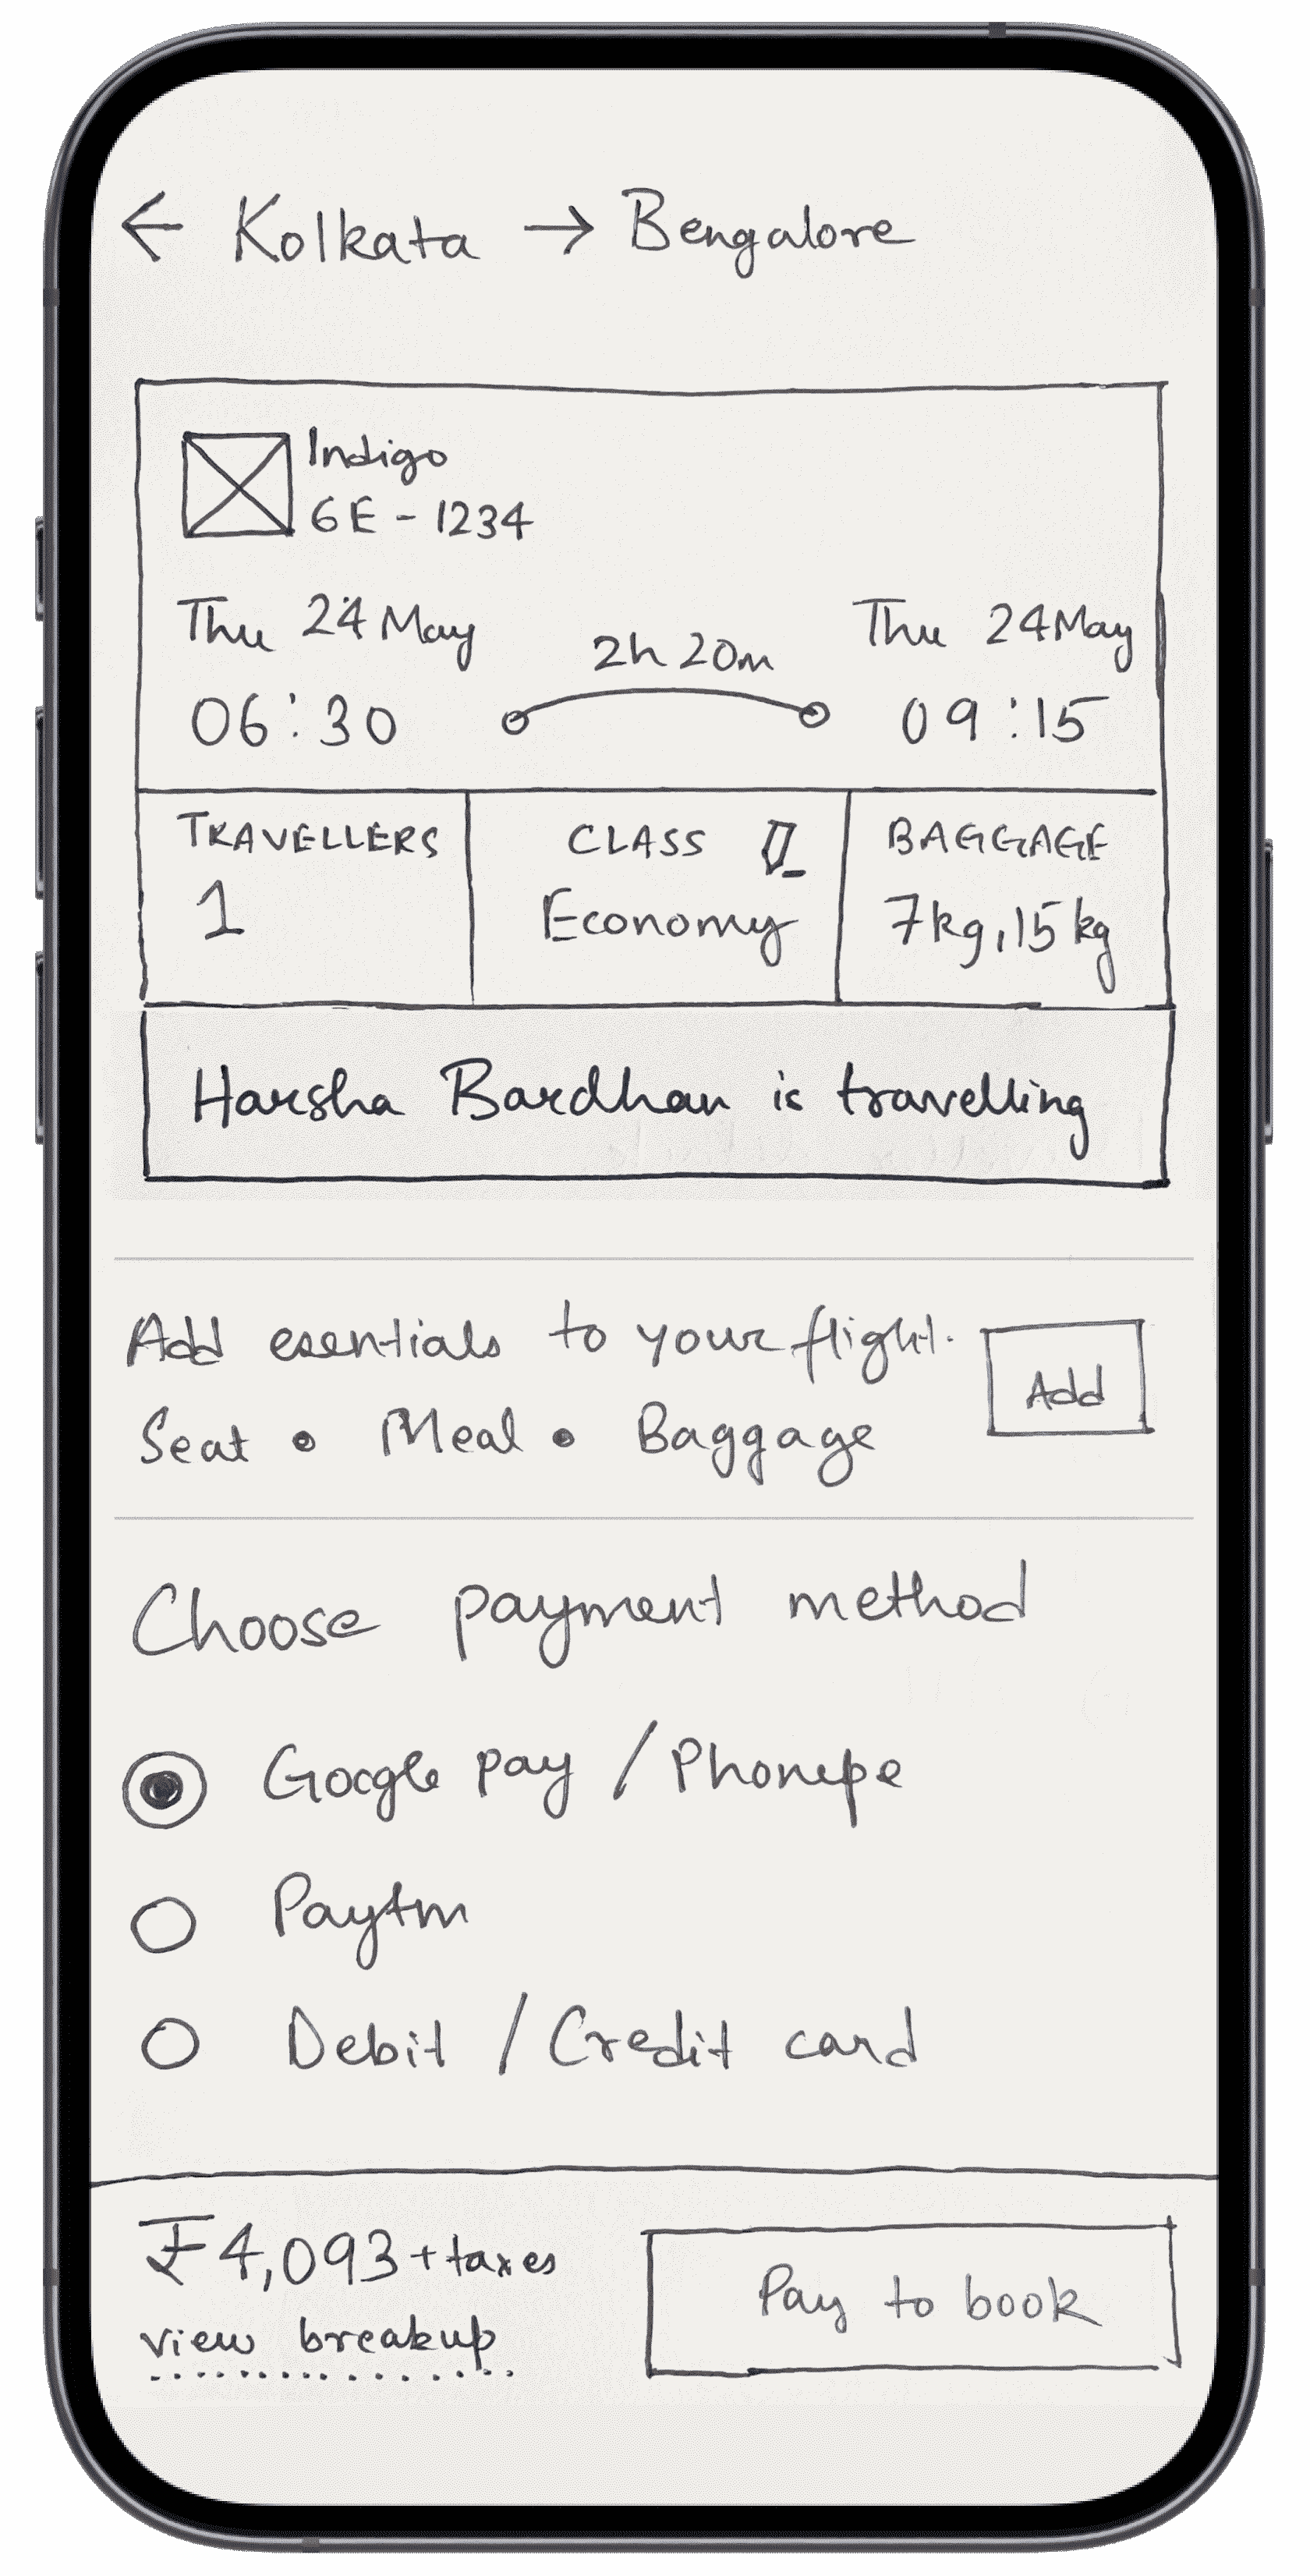 ← Kolkata → Bengalore
Indigo
6E - 1234
Thu 24 May
2h 20m
Thu 24 May
06:30
09:15
TRAVELLERS
CLASS
BAGGAGE
1
Economy
7kg, 15 kg
Harsha Bardhan is travelling
Add esentials to your flight.
Add
Seat • Meal • Baggage
Choose payment method
Google pay / Phonepe
Paytm
Debit / Credit card
₹4,093 + taxes
view breakup
Pay to book